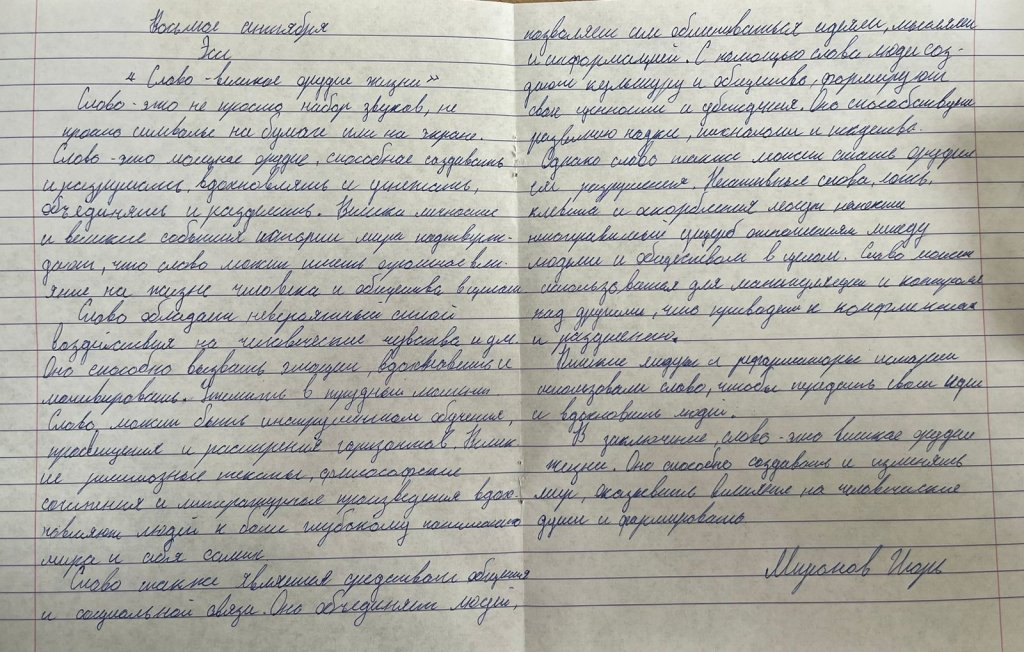 Восьмое сентября
Эссе
"Слово - великое орудие жизни"
Слово - это не просто набор звуков, не
просто символы на бумаге или на экране.
Слово - это мощное орудие, способное создавать
и разрушать, вдохновлять и угнетать,
объединять и разделять. Великие личности
и великие события истории мира подтверж-
дают, что слово может иметь огромное вли-
яние на жизнь человека и общества в целом
Слово обладает невероятный силой
воздействуя на человеческие чувства и
Оно способно вызвать эмоции, вдохновить и
мотивировать. Утешить в трудной момент
Слово, может быть инструментом обучения,
просвещения и расширения горизонтов. Велик
ие религиозные тексты, философские
сочинения и литературное произведения вдох-
новляют людей к более глубокому пониманию
мира и себя самих
Слово также является средством общения
и социальной связи. Оно объединяет людей,
позволяет им обмениваться идеями, мыслями
и информацией. С помощью слова люди соз-
дают культуру и общества, формируют
свои ценности и убеждения. Оно способствует
развитию науки, технологии и искусства.
Однако слово также может стать орудием
разрушения. Негативные слова, ложь,
клевета и оскорбления могут нанести
непоправимый ущерб отношениям между
людьми и обществом в целом. Слово может
использоваться для манипуляции и контроля
над другими, что приводит к конфликтам
и разделению.
Великие лидеры и реформаторы истории
использовали слово, чтобы передать свои идеи
и вдохновить людей.
В заключение, слово - это великое орудие
жизни. Оно способно создавать и изменять
мир, оказывать влияние на человеческие
души и формировать
Миронов Игорь